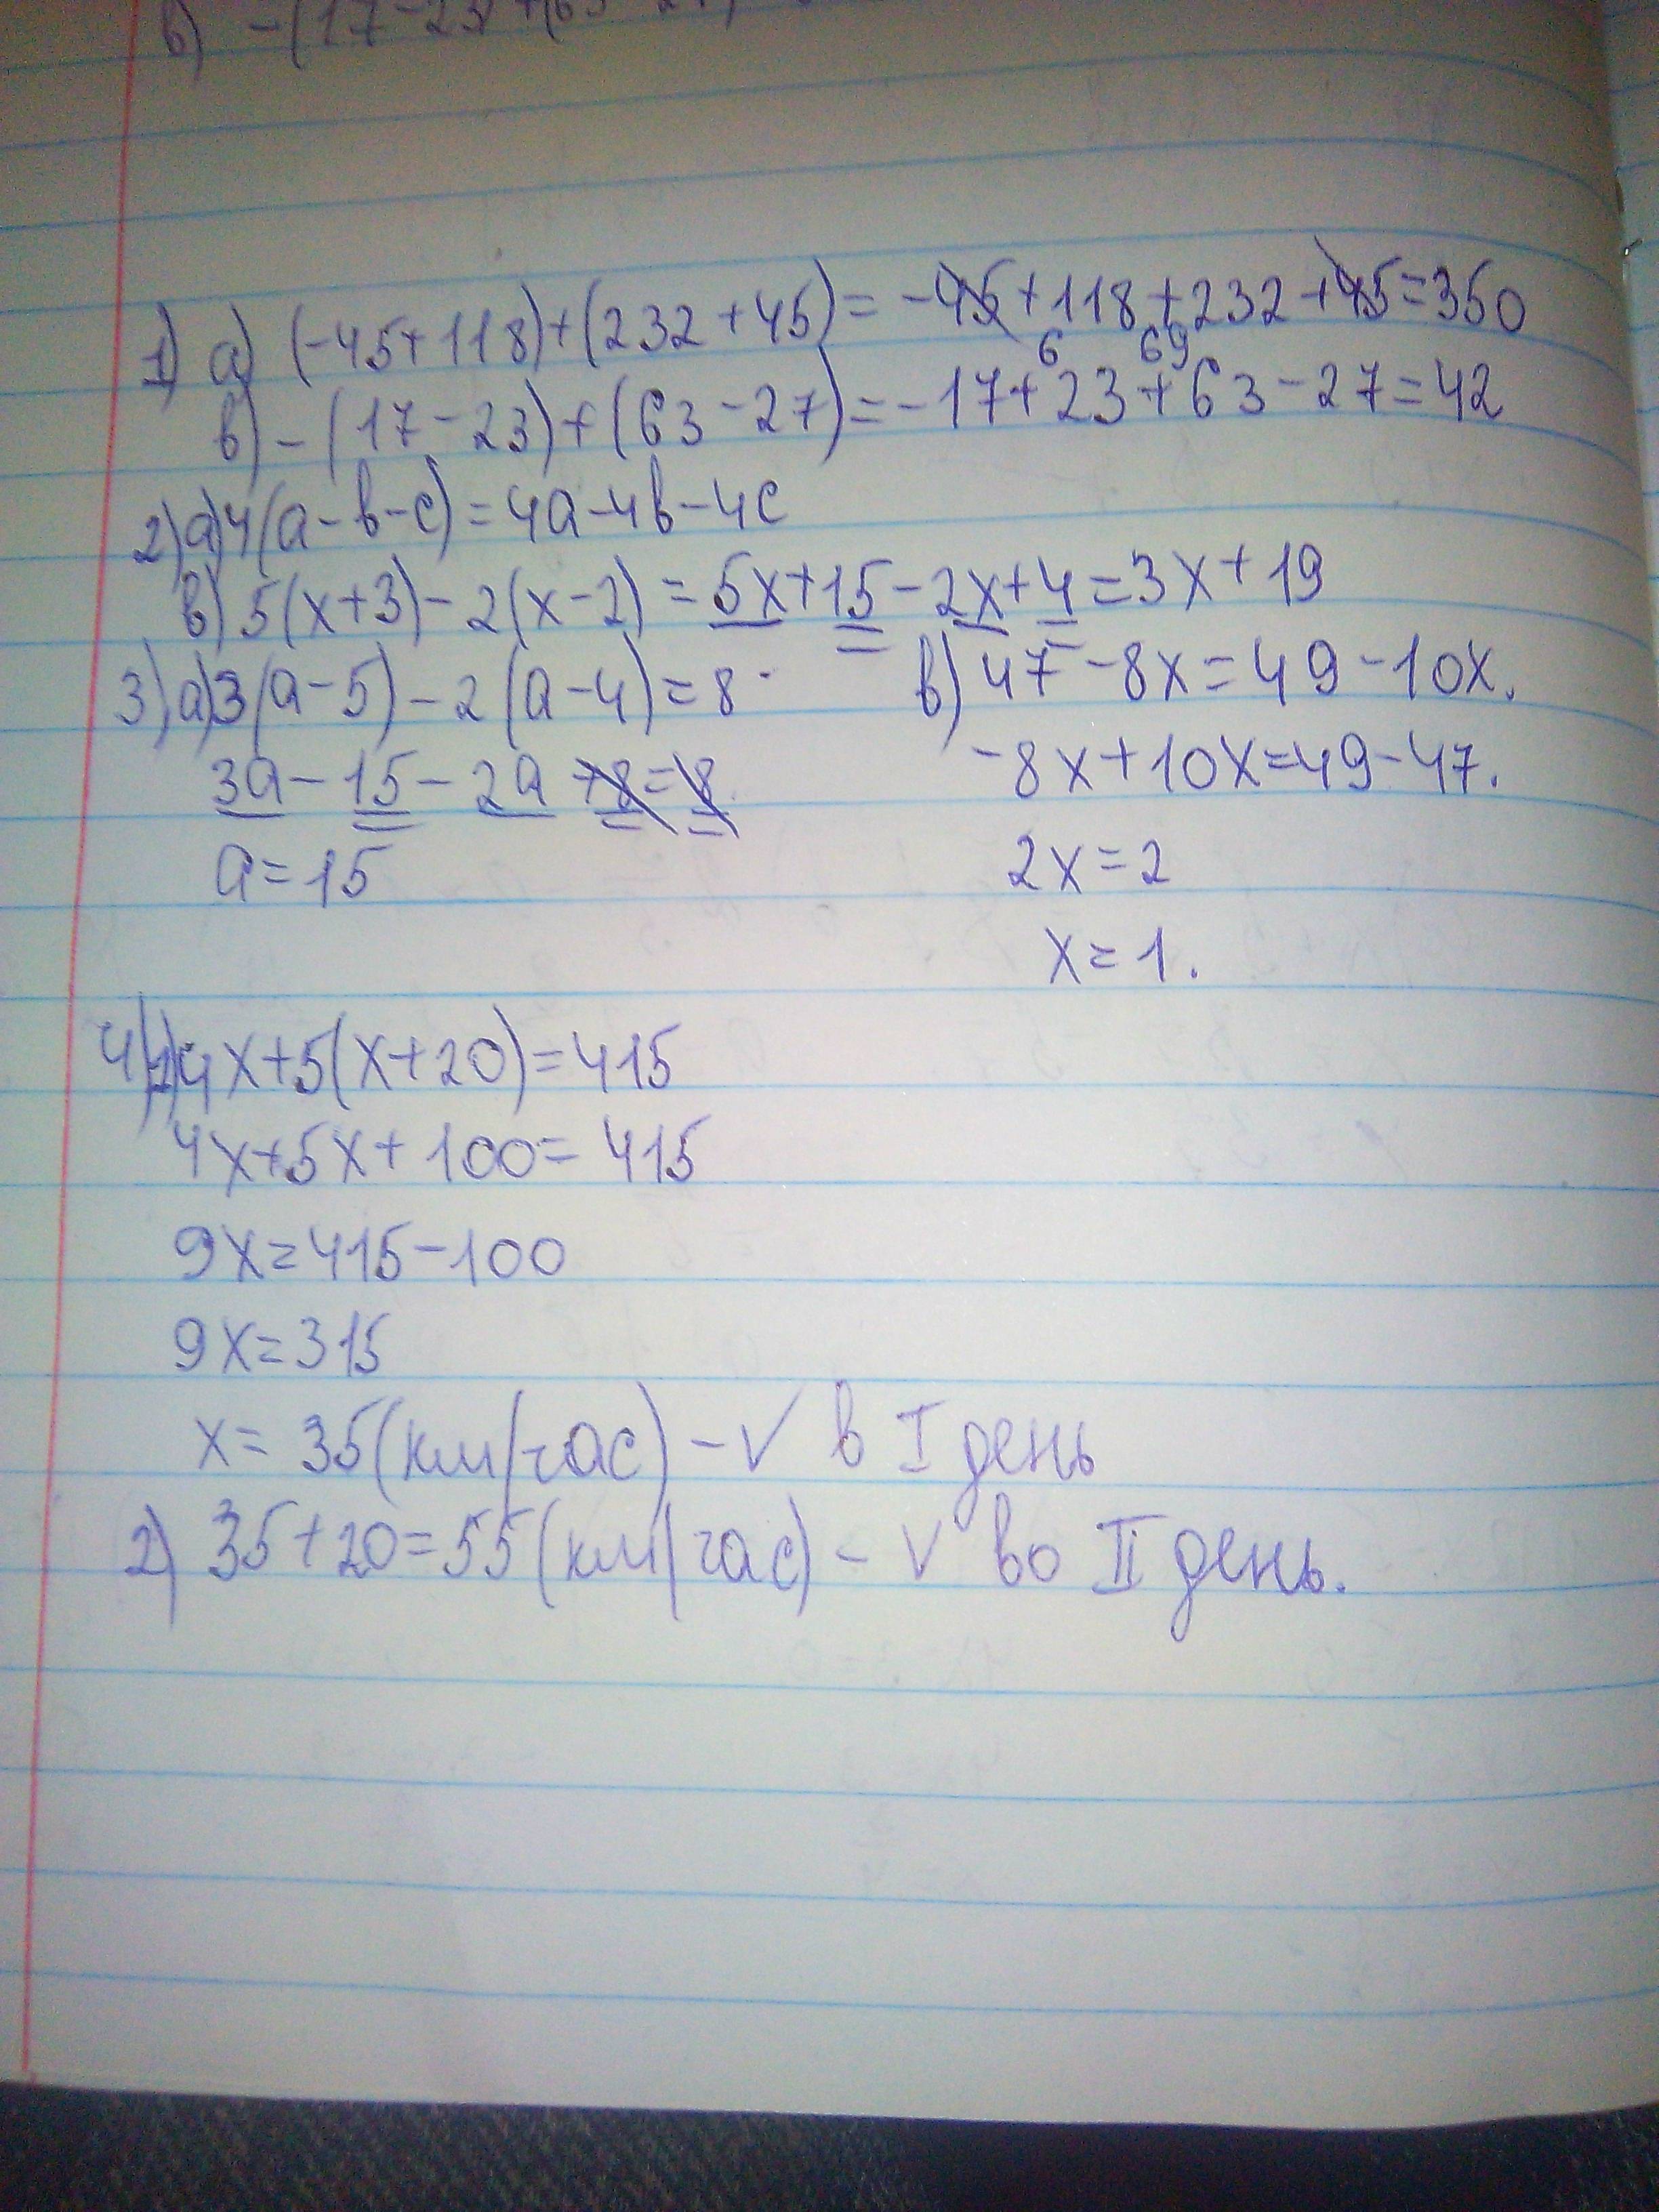 в) -(17-23)+(63-27)
1) а) (-45+118)+(232+45)=-45+118+232+45=350
6 69
в) -(17-23)+(63-27)=-17+23+63-27=42
2) а) 4(a-b-c)=4a-4b-4c
в) 5(x+3)-2(x-2)=5x+15-2x+4=3x+19
3) а) 3(a-5)-2(a-4)=8
3a-15-2a+8=8
a=15
в) 47-8x=49-10x.
-8x+10x=49-47.
2x=2
x=1.
4) 1) 4x+5(x+20)=415
4x+5x+100=415
9x=415-100
9x=315
x=35(км/час)-V в I день
2) 35+20=55(км/час)-V во II день.